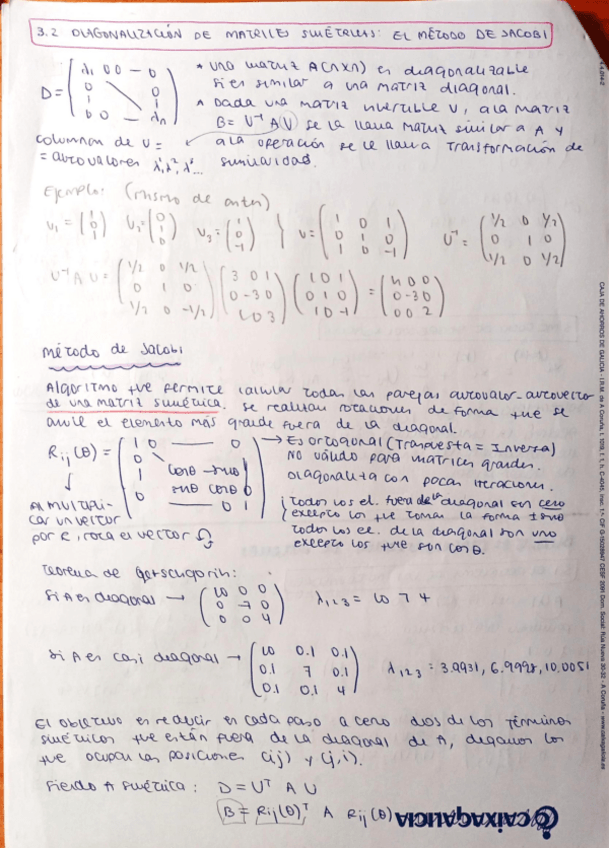 3.2 DIAGONALIZACIÓN DE MATRICES SIMÉTRICAS: EL MÉTODO DE JACOBI
D = (λ1 0 0 — 0
0 0
1 1
0 0 — λn)
* Una matriz A(n×n) es diagonalizable
si es similar a una matriz diagonal.
* Dada una matriz invertible U, a la matriz
B = U⁻¹ A U se la llama matriz similar a A y
a la operación se le llama transformación de
similaridad.
columnas de U =
= autovalores λ¹, λ², λ³...
Ejemplo: (mismo de antes)
U1 = (1 0 1) U2 = (0 1 0) U3 = (1 0 -1) } U = (1 0 1
0 1 0
1 0 -1) U⁻¹ = (1/2 0 1/2
0 1 0
1/2 0 1/2)
U⁻¹ A U = (1/2 0 1/2
0 1 0
1/2 0 -1/2) (3 0 1
0 -3 0
1 0 3) (1 0 1
0 1 0
1 0 -1) = (4 0 0
0 -3 0
0 0 2)
Método de Jacobi
Algoritmo que permite calcular todas las parejas autovalor-autovector
de una matriz simétrica. Se realizan rotaciones de forma que se
anule el elemento más grande fuera de la diagonal.
Rij(θ) = (1 0 — 0
0 0
1 cosθ -senθ
senθ cosθ 0
0 0 1)
→ Es ortogonal (Transpuesta = Inversa)
No válido para matrices grandes.
Diagonaliza con pocas iteraciones.
Todos los el. fuera de la diagonal son cero
excepto los que toman la forma ± senθ
Todos los el. de la diagonal son uno
excepto los que son cosθ.
Al multipli-
car un vector
por R, rota el vector
Teorema de Gerschgorin:
Si A es diagonal → (10 0 0
0 7 0
0 0 4) λ1,2,3 = 10 7 4
Si A es casi diagonal → (10 0.1 0.1
0.1 7 0.1
0.1 0.1 4) λ1,2,3 = 3.9931, 6.9998, 10.0051
El objetivo es reducir en cada paso a cero dos de los términos
simétricos que están fuera de la diagonal de A, digamos los
que ocupan las posiciones (i,j) y (j,i).
Siendo A simétrica: D = Uᵀ A U
B = Rij(θ)ᵀ A Rij(θ)
CAIXAGALICIA